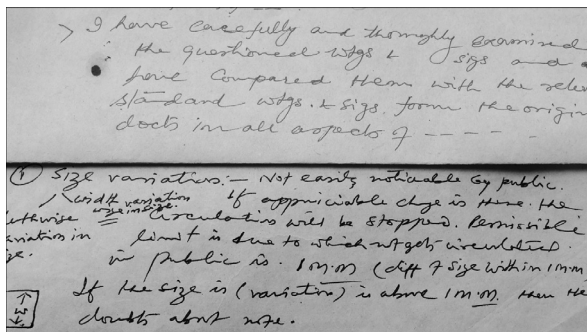 > I have carefully and thoroughly examined
the questioned wtgs & sigs and
have compared them with the rele
standard wtgs. & sigs. form the origin
docts in all aspects of - - - -
① Size variation:- Not easily noticable by public.
width variation If appriciable chge is there. the
wise in size. Circulation will be stopped. Permissible
variation in limit is due to which nt gets circulated
in public is. 1 m.m (diff of size within 1 m.m
If the size is (variation) is above 1 m.m. then the
doubts about note.